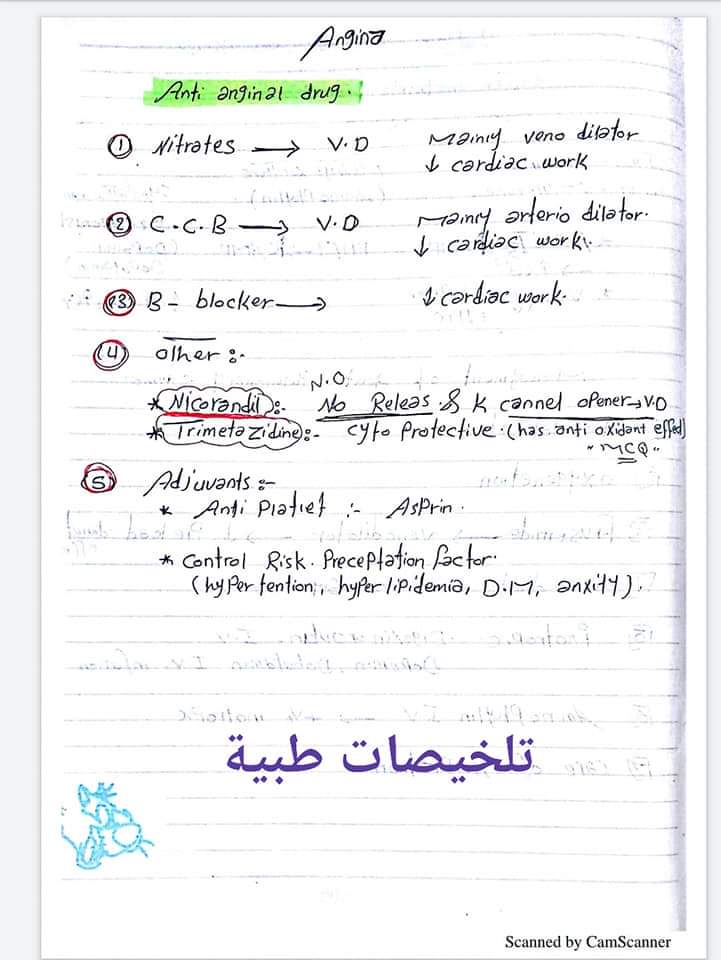 Angina
Anti anginal drug.
① Nitrates → V.D Mainly veno dilator
↓ cardiac work
② C.C.B → V.D Mainly arterio dilator.
↓ cardiac work
③ B- blocker → ↓ cardiac work.
④ other :-
N.O
* Nicorandil :- No Releas & K cannel opener → V.D
* Trimetazidine :- cyto Protective (has anti oxidant effect)
"MCQ"
⑤ Adjuvants :-
* Anti Platlet :- Asprin.
* Control Risk. Preceptation factor.
(hyper tention, hyper lipidemia, D.M, anxity).
تلخيصات طبية
Scanned by CamScanner